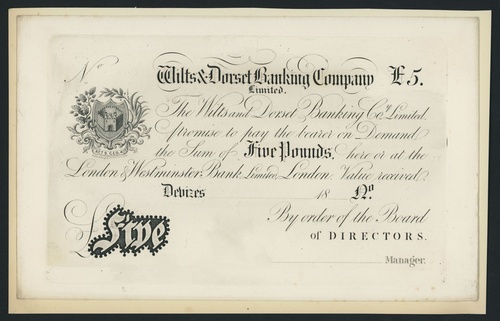 No
Wilts & Dorset Banking Company £5.
Limited.
The Wilts and Dorset Banking Coy. Limited.
Promise to pay the bearer on Demand
the Sum of Five Pounds, here or at the
London & Westminster Bank Limited, London. Value received.
Devizes 18 No.
By order of the Board
of DIRECTORS.
£ Five
Manager.